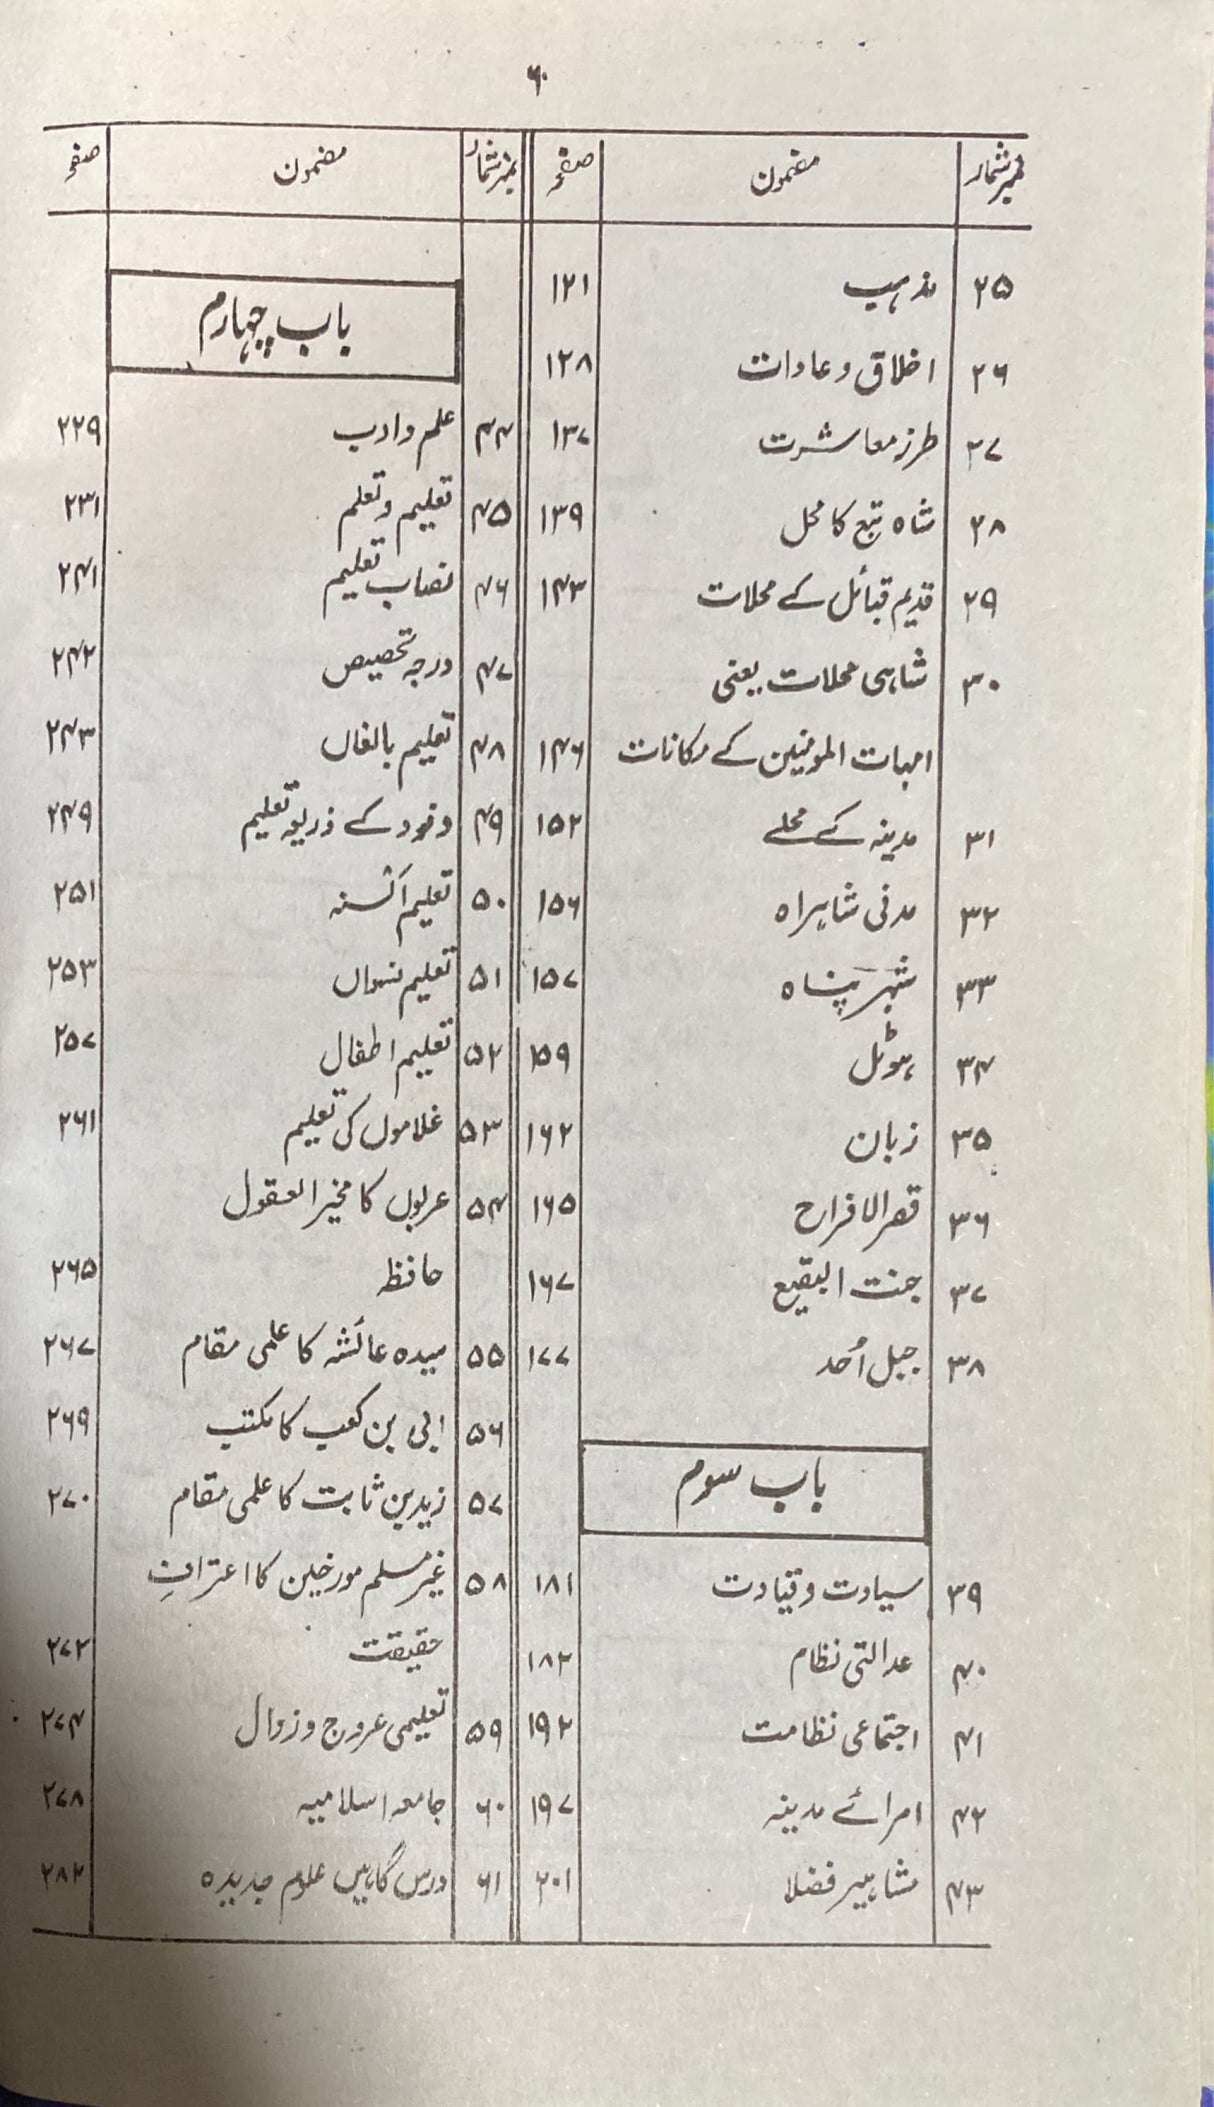 ۶
نمبر شمار مضمون صفحہ
۲۵ مذہب ۱۲۱
۲۶ اخلاق و عادات ۱۲۸
۲۷ طرز معاشرت ۱۳۷
۲۸ شاہ تبع کا محل ۱۳۹
۲۹ قدیم قبائل کے محلات ۱۴۳
۳۰ شاہی محلات یعنی
امہات المومنین کے مکانات ۱۴۶
۳۱ مدینہ کے محلے ۱۵۲
۳۲ مدنی شاہراہ ۱۵۶
۳۳ شہر پناہ ۱۵۷
۳۴ ہوٹل ۱۵۹
۳۵ زبان ۱۶۲
۳۶ قصر الافراح ۱۶۵
۳۷ جنت البقیع ۱۶۷
۳۸ جبل اُحد ۱۷۷
باب سوم
۳۹ سیادت و قیادت ۱۸۱
۴۰ عدالتی نظام ۱۸۲
۴۱ اجتماعی نظامت ۱۹۲
۴۲ امرائے مدینہ ۱۹۷
۴۳ مشاہیر فضلا ۲۰۱
نمبر شمار مضمون صفحہ
باب چہارم
۴۴ علم و ادب ۲۲۹
۴۵ تعلیم و تعلم ۲۳۱
۴۶ نصاب تعلیم ۲۴۱
۴۷ درجہ تخصیص ۲۴۲
۴۸ تعلیم بالغاں ۲۴۳
۴۹ وفود کے ذریعہ تعلیم ۲۴۹
۵۰ تعلیم اَلسنہ ۲۵۱
۵۱ تعلیم نسواں ۲۵۳
۵۲ تعلیم اطفال ۲۵۷
۵۳ غلاموں کی تعلیم ۲۶۱
۵۴ عربوں کا مخیر العقول
حافظہ ۲۶۵
۵۵ سیدہ عائشہ کا علمی مقام ۲۶۷
۵۶ ابی بن کعب کا مکتب ۲۶۹
۵۷ زید بن ثابت کا علمی مقام ۲۷۰
۵۸ غیر مسلم مورخین کا اعترافِ
حقیقت ۲۷۲
۵۹ تعلیمی عروج و زوال ۲۷۴
۶۰ جامعہ اسلامیہ ۲۷۸
۶۱ درس گاہیں علوم جدیدہ ۲۸۲